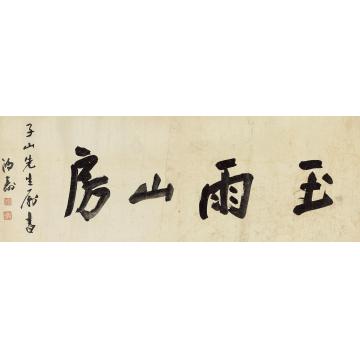 玉雨山房
子山先生屬書